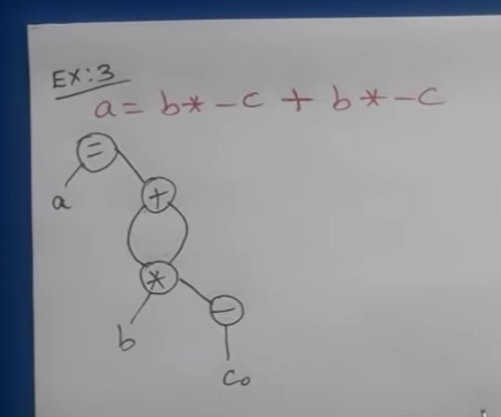 EX:3
a = b * - c + b * - c
=
a
+
*
b
-
c